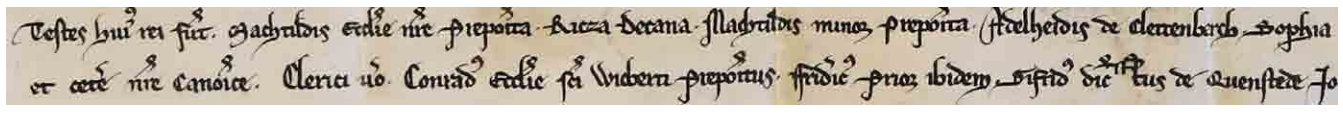 Testes hui᷒ rei sūt. Machtildis Eccl̄ie nr̄e Prepoīta. Ricza Decana. Machtildis minor preposita. Adelheidis de Clettenberch. Sophia
et ceter̄ nr̄e canōice. Clerici ūo. Conrad᷒ Eccl̄ie sc̄i Wicberti prepoītus. Frideric᷒ Prior ibidem. Sifrid᷒ dic̄tus de Quenstede. Jo